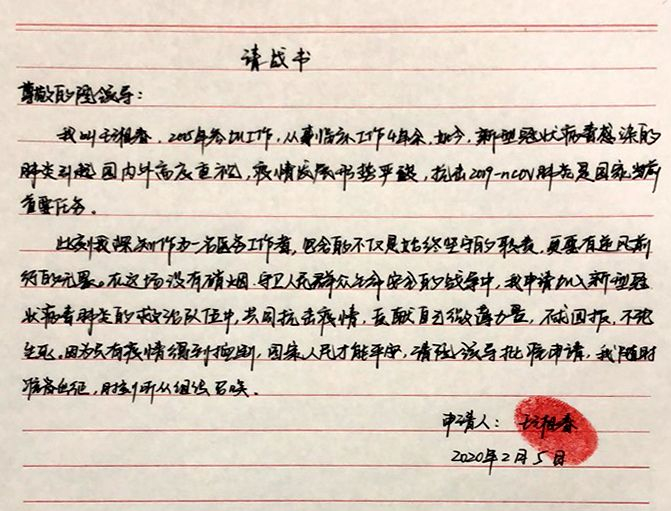 请战书
尊敬的院领导：
我叫祖春，2015年参加工作，从事临床工作4年余，如今，新型冠状病毒感染的
肺炎引起国内外高度重视，疫情发展形势严峻，抗击2019-nCoV肺炎是国家当前
重要任务。
此刻我深知作为一名医务工作者，包含的不仅是始终坚守的职责，更要有逆风前
行的无畏。在这场没有硝烟、守卫人民群众生命安全的战争中，我申请加入新型冠
状病毒肺炎的救治队伍中，共同抗击疫情，贡献自己微薄力量，不求回报，不论
生死。因为只有疫情得到控制，国家人民才能平安，请院领导批准申请，我随时
准备出征，时刻听从组织召唤。
申请人：祖春
2020年2月5日